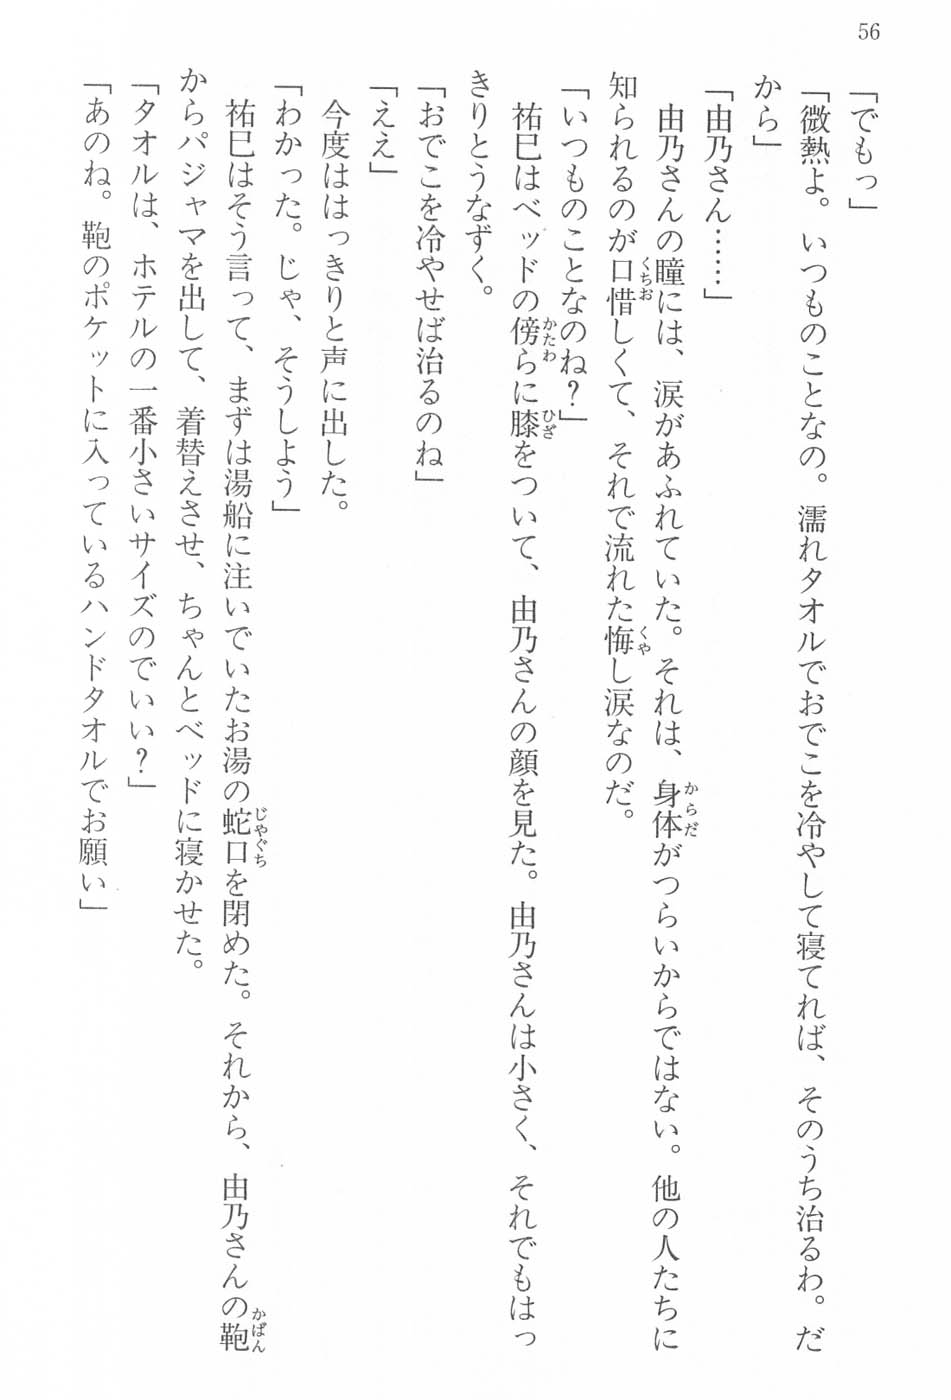 56
「でもっ」
「微熱よ。いつものことなの。濡れタオルでおでこを冷やして寝てれば、そのうち治るわ。だ
から」
「由乃さん……」
由乃さんの瞳には、涙があふれていた。それは、身体がつらいからではない。他の人たちに
知られるのが口惜しくて、それで流れた悔し涙なのだ。
「いつものことなのね？」
祐巳はベッドの傍らに膝をついて、由乃さんの顔を見た。由乃さんは小さく、それでもはっ
きりとうなずく。
「おでこを冷やせば治るのね」
「ええ」
今度ははっきりと声に出した。
「わかった。じゃ、そうしよう」
祐巳はそう言って、まずは湯船に注いでいたお湯の蛇口を閉めた。それから、由乃さんの鞄
からパジャマを出して、着替えさせ、ちゃんとベッドに寝かせた。
「タオルは、ホテルの一番小さいサイズのでいい？」
「あのね。鞄のポケットに入っているハンドタオルでお願い」